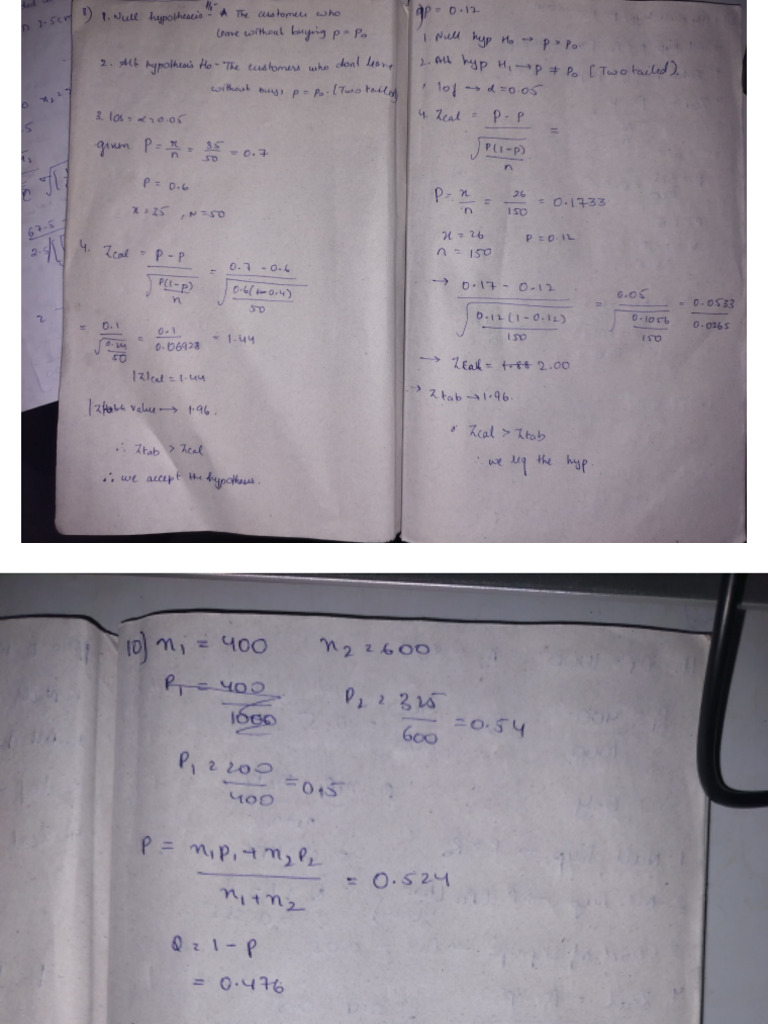 8) 1. Null hypothesis :- The customers who
leave without buying p = p₀
2. Alt hypothesis H₀ - The customers who dont leave
without buys p = p₀. (Two tailed)
3. los = α = 0.05
given P = x/n = 35/50 = 0.7
P = 0.6
x = 25, N = 50
4. Zcal = P - P / √(P(1-p)/n) = 0.7 - 0.6 / √(0.6(1-0.4)/50)
= 0.1 / √(0.24/50) = 0.1 / 0.06928 = 1.44
|Z|cal = 1.44
|Ztab value → 1.96.
∴ Ztab > Zcal
∴ we accept the hypothesis.
9) P = 0.12
1. Null hyp H₀ → P > P₀
2. Alt hyp H₁ → P ≠ P₀ (Two tailed)
los → α = 0.05
4. Zcal = P - P / √(P(1-P)/n) =
P = x/n = 26/150 = 0.1733
x = 26 P = 0.12
n = 150
→ 0.17 - 0.12 / √(0.12(1-0.12)/150) = 0.05 / √(0.1056/150) = 0.0533 / 0.0265
→ Zcal = 2.00
→ Ztab → 1.96.
Zcal > Ztab
∴ we rej the hyp.
10) n₁ = 400 n₂ = 600
P₁ = 400/1000 P₂ = 325/600 = 0.54
P₁ = 200/400 = 0.5
P = n₁p₁ + n₂P₂ / n₁ + n₂ = 0.524
Q = 1 - P
= 0.476